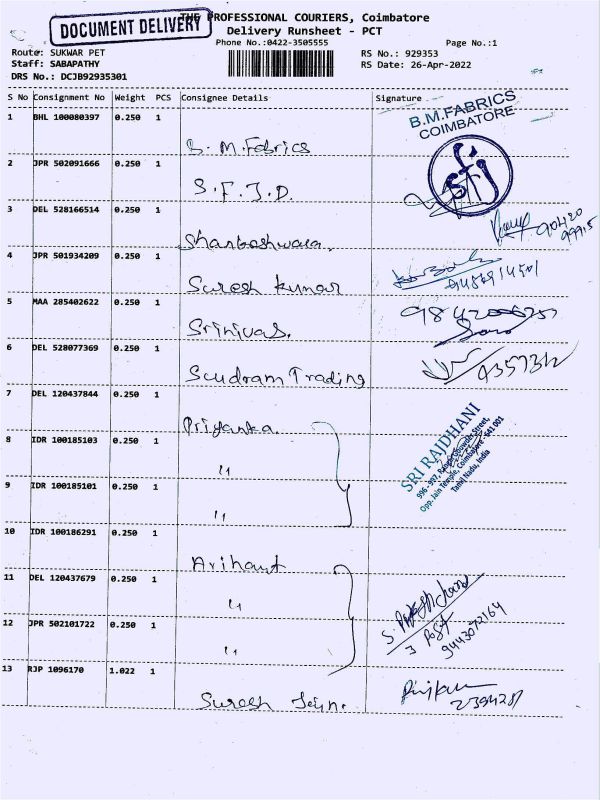 DOCUMENT DELIVERY
THE PROFESSIONAL COURIERS, Coimbatore
Delivery Runsheet - PCT
Phone No.:0422-3505555
Page No.:1
Route: SUKWAR PET
RS No.: 929353
Staff: SABAPATHY
RS Date: 26-Apr-2022
DRS No.: DCJB92935301
S No Consignment No Weight PCS Consignee Details Signature
B.M.FABRICS
COIMBATORE
1 BHL 100080397 0.250 1
B. M. Fabrics
2 JPR 502091666 0.250 1
S.F.J.D.
sfj
3 DEL 528166514 0.250 1
90420
99915
4 JPR 501934209 0.250 1
Suresh kumar
5 MAA 285402622 0.250 1
Srinivas.
6 DEL 528077369 0.250 1
Trading
7 DEL 120437844 0.250 1
Priyanka
SRI RAJDHANI
Opp. Jain Temple, Coimbatore - 641 001
Tamil Nadu, India
8 IDR 100185103 0.250 1
"
9 IDR 100185101 0.250 1
"
10 IDR 100186291 0.250 1
Arihant
11 DEL 120437679 0.250 1
"
12 JPR 502101722 0.250 1
"
3 Post
9443072164
13 RJP 1096170 1.022 1
Suresh Jain.